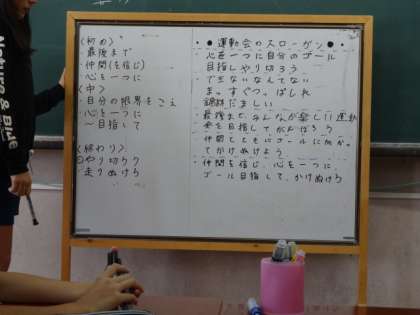 〈初め〉
最後まで
仲間(を信じ)
心を一つに
〈中〉
・自分の限界をこえ
・心を一つに
～目指して
〈終わり〉
やり切ろう
・走りぬけろ
●運動会のスローガン●
・心を一つに自分のゴール
目指しやり切ろう
できないなんてない
まっすぐつっぱしれ
だましい
・最後まで、みんなが楽しい運動
会を目指してがんばろう
仲間とともにゴールに向かっ
てかけぬけよう
・仲間を信じ、心を一つに
ゴール目指して、かけぬけろ
Nature & Blue